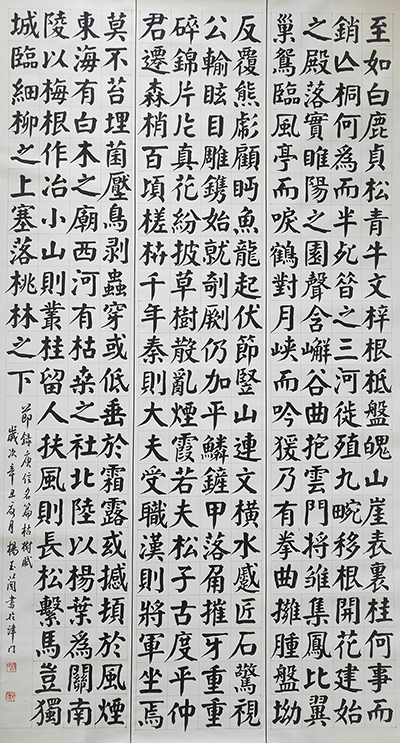 至如白鹿貞松青牛文梓根柢盤魄山崖表裏桂何事而
銷亾桐何為而半死昔之三河徙殖九畹移根開花建始
之殿落實睢陽之園聲含嶰谷曲抱雲門將雛集鳳比翼
巢鴛臨風亭而唳鶴對月峽而吟猨乃有拳曲擁腫盤坳
反覆熊彪顧眄魚龍起伏節豎山連文橫水蹙匠石驚視
公輸眩目雕鐫始就剞劂仍加平鱗鏟甲落角摧牙重重
碎錦片片真花紛披草樹散亂煙霞若夫松子古度平仲
君遷森梢百頃槎枿千年秦則大夫受職漢則將軍坐焉
莫不苔埋菌壓鳥剥蟲穿或低垂於霜露或撼頓於風煙
東海有白木之廟西河有枯桑之社北陸以楊葉為關南
陵以梅根作冶小山則叢桂留人扶風則長松繫馬豈獨
城臨細柳之上塞落桃林之下
節錄庾信名篇枯樹賦
歲次辛丑月楊玉蘭書於津门